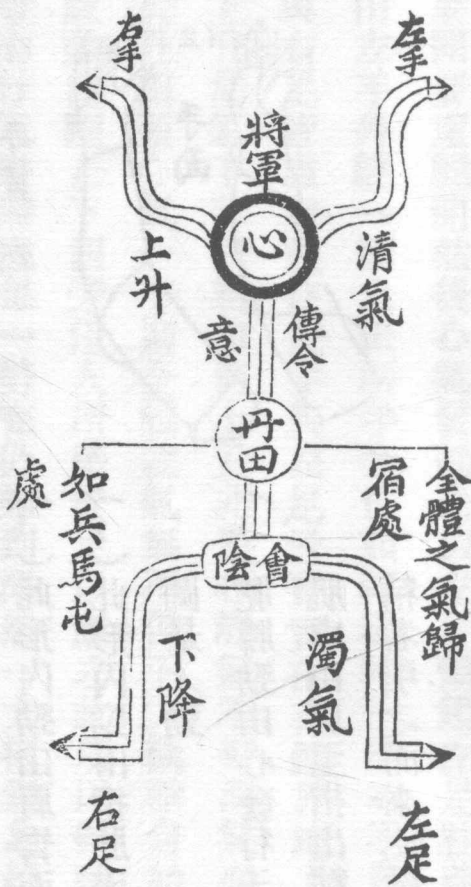 左手
右手
將軍
心
清氣
上升
傳令
意
丹田
全體之氣歸
宿處
如兵馬屯
處
會陰
濁氣
下降
左足
右足